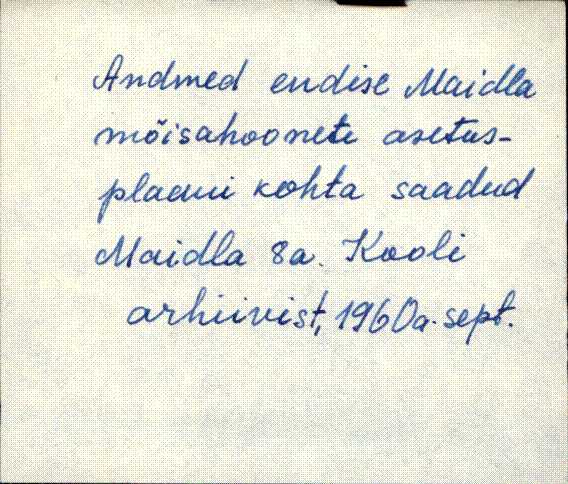 Andmed endise Maidla
mõisahoonete asetus-
plaani kohta saadud
Maidla 8a. Kooli
arhiivist, 1960a. sept.